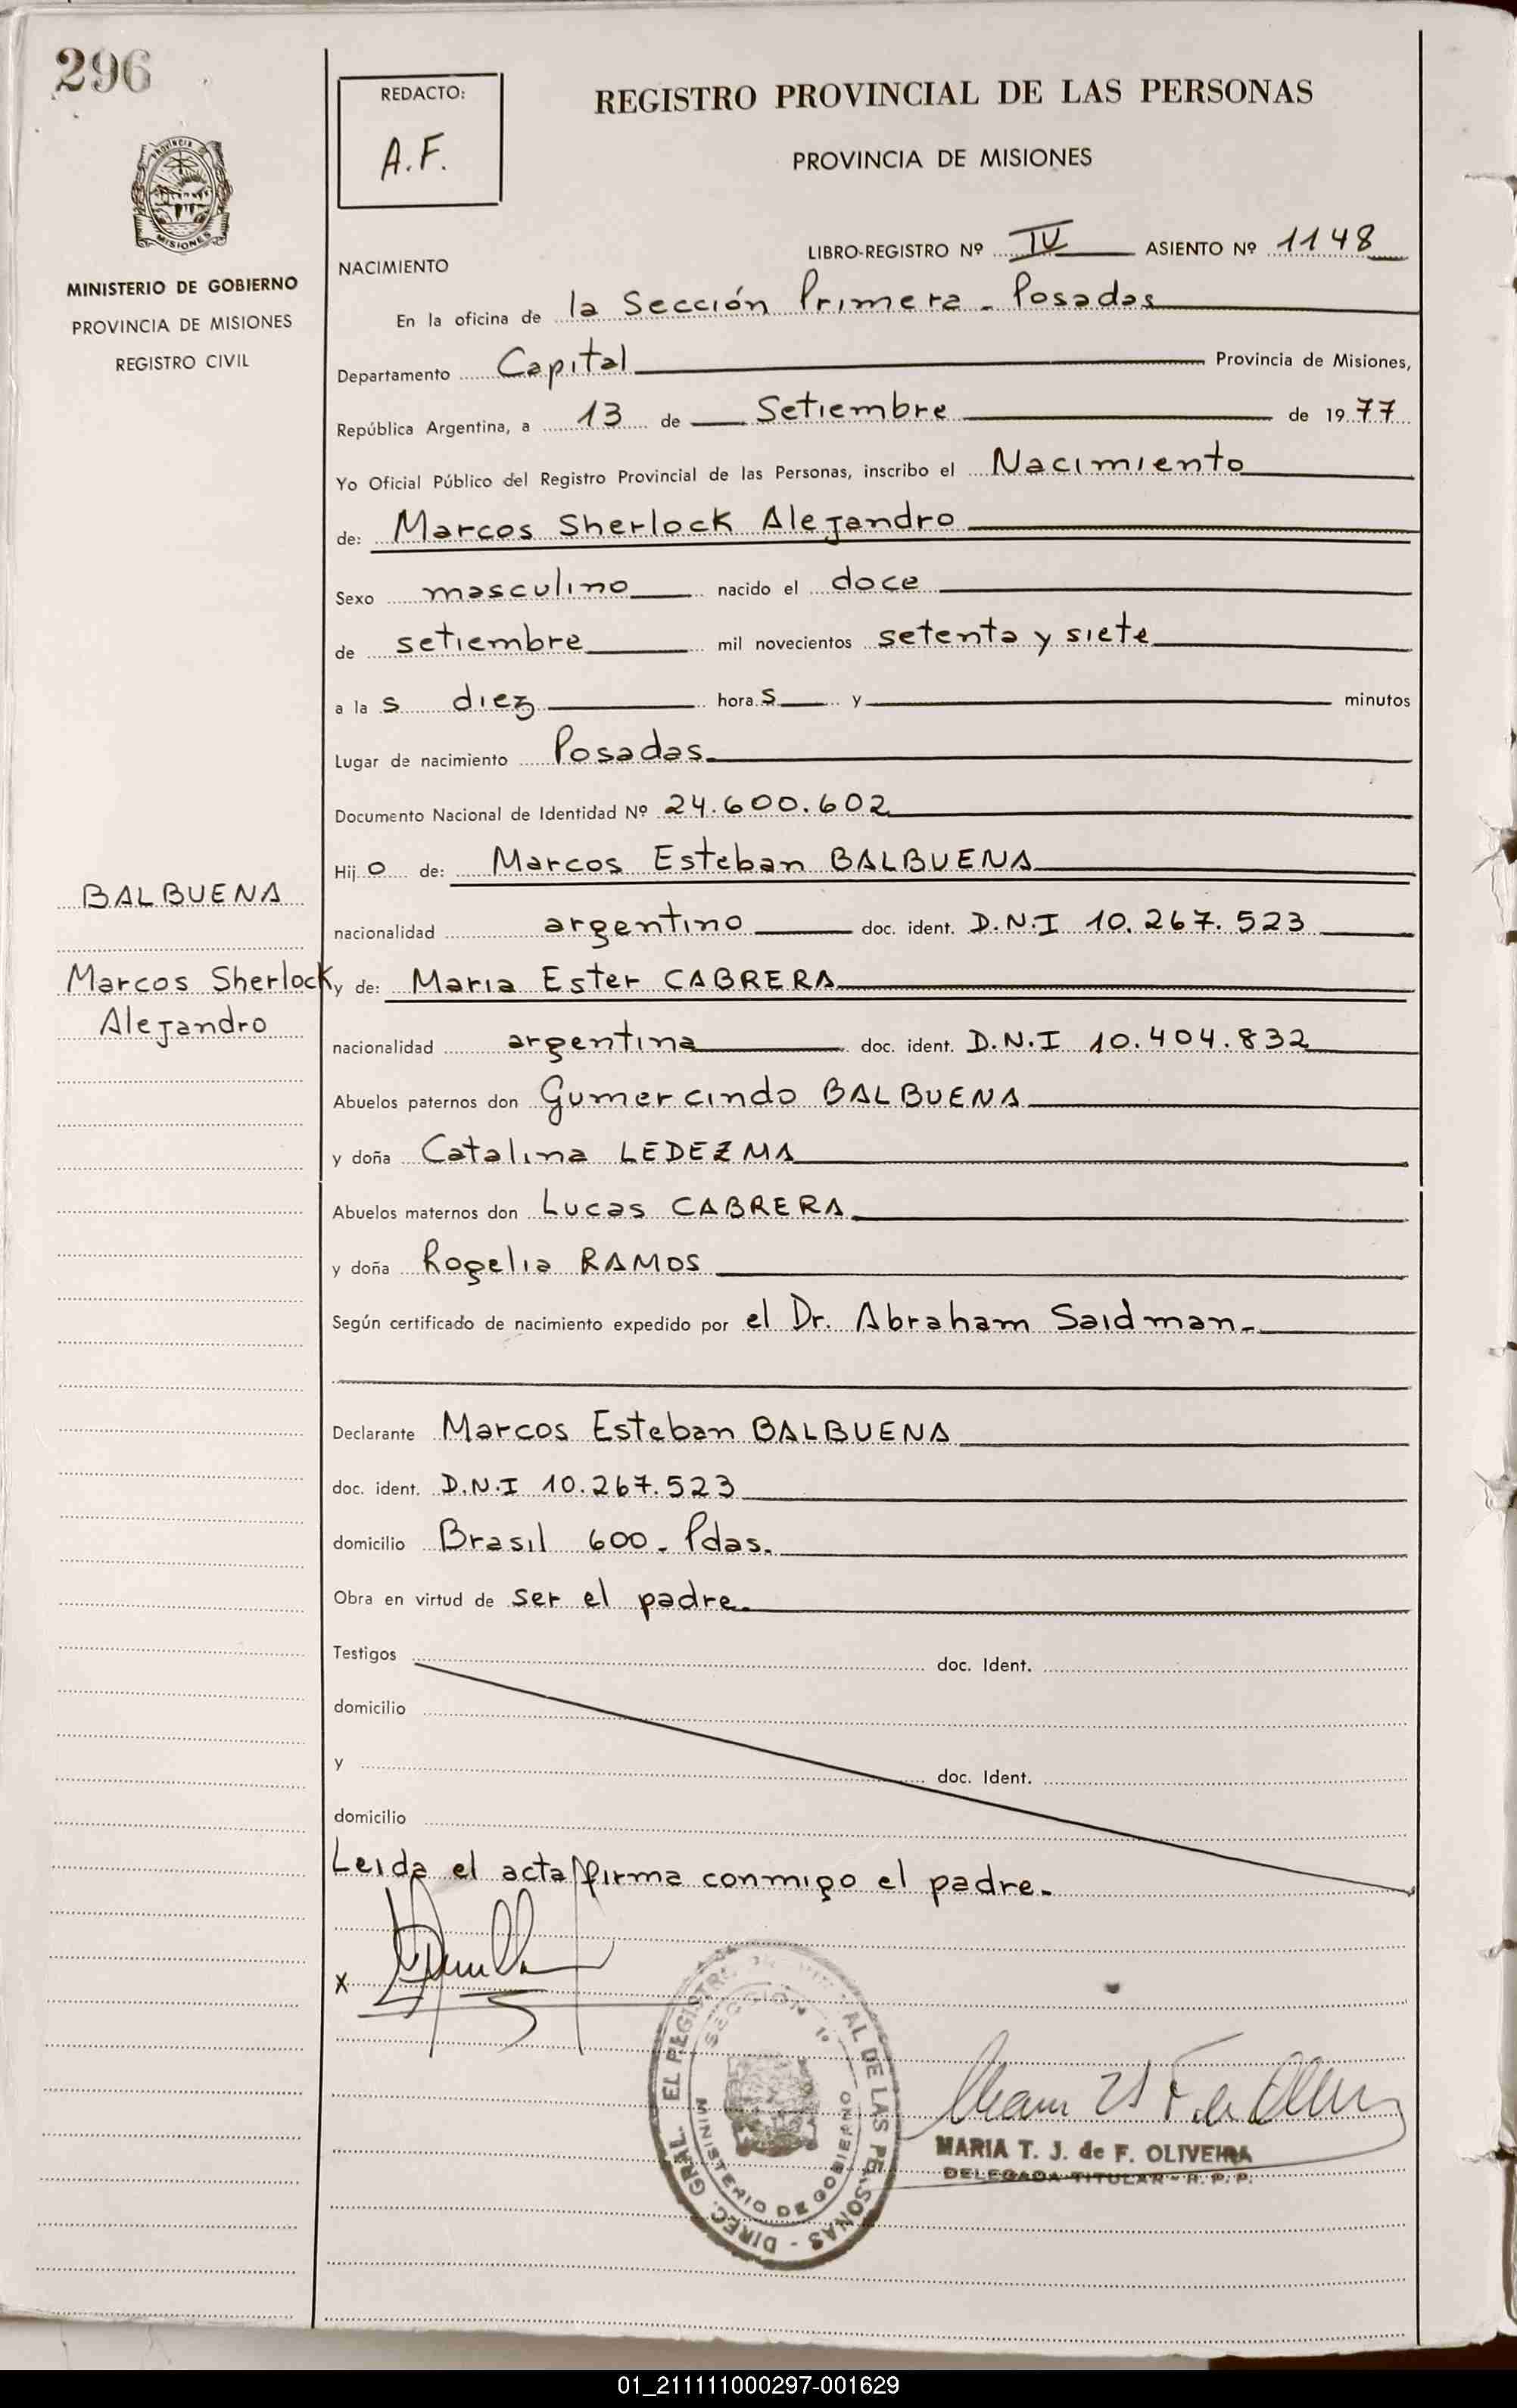 296
REDACTO:
A.F.
REGISTRO PROVINCIAL DE LAS PERSONAS
PROVINCIA DE MISIONES
MISIONES
MINISTERIO DE GOBIERNO
PROVINCIA DE MISIONES
REGISTRO CIVIL
LIBRO-REGISTRO Nº IV ASIENTO Nº 1148
NACIMIENTO
En la oficina de la Sección Primera - Posadas
Departamento Capital Provincia de Misiones,
República Argentina, a 13 de Setiembre de 1977
Yo Oficial Público del Registro Provincial de las Personas, inscribo el Nacimiento
de: Marcos Sherlock Alejandro
Sexo masculino nacido el doce
de setiembre mil novecientos setenta y siete
a la s diez hora s y minutos
Lugar de nacimiento Posadas.
Documento Nacional de Identidad Nº 24.600.602
Hij o de: Marcos Esteban BALBUENA
BALBUENA
nacionalidad argentino doc. ident. D.N.I 10.267.523
Marcos Sherlock
y de: Maria Ester CABRERA
Alejandro
nacionalidad argentina doc. ident. D.N.I 10.404.832
Abuelos paternos don Gumercindo BALBUENA
y doña Catalina LEDEZMA
Abuelos maternos don Lucas CABRERA
y doña Rogelia RAMOS
Según certificado de nacimiento expedido por el Dr. Abraham Saidman.
Declarante Marcos Esteban BALBUENA
doc. ident. D.N.I 10.267.523
domicilio Brasil 600. Pdas.
Obra en virtud de ser el padre.
Testigos doc. Ident.
domicilio
y doc. Ident.
domicilio
Leida el acta firma conmigo el padre.
x
DIREC. GRAL. EL REGISTRO DE LAS PERSONAS
SECCION 1º
MINISTERIO DE GOBIERNO
MARIA T. J. de F. OLIVEIRA
DELEGADA TITULAR - R. P. P.
01_211111000297-001629